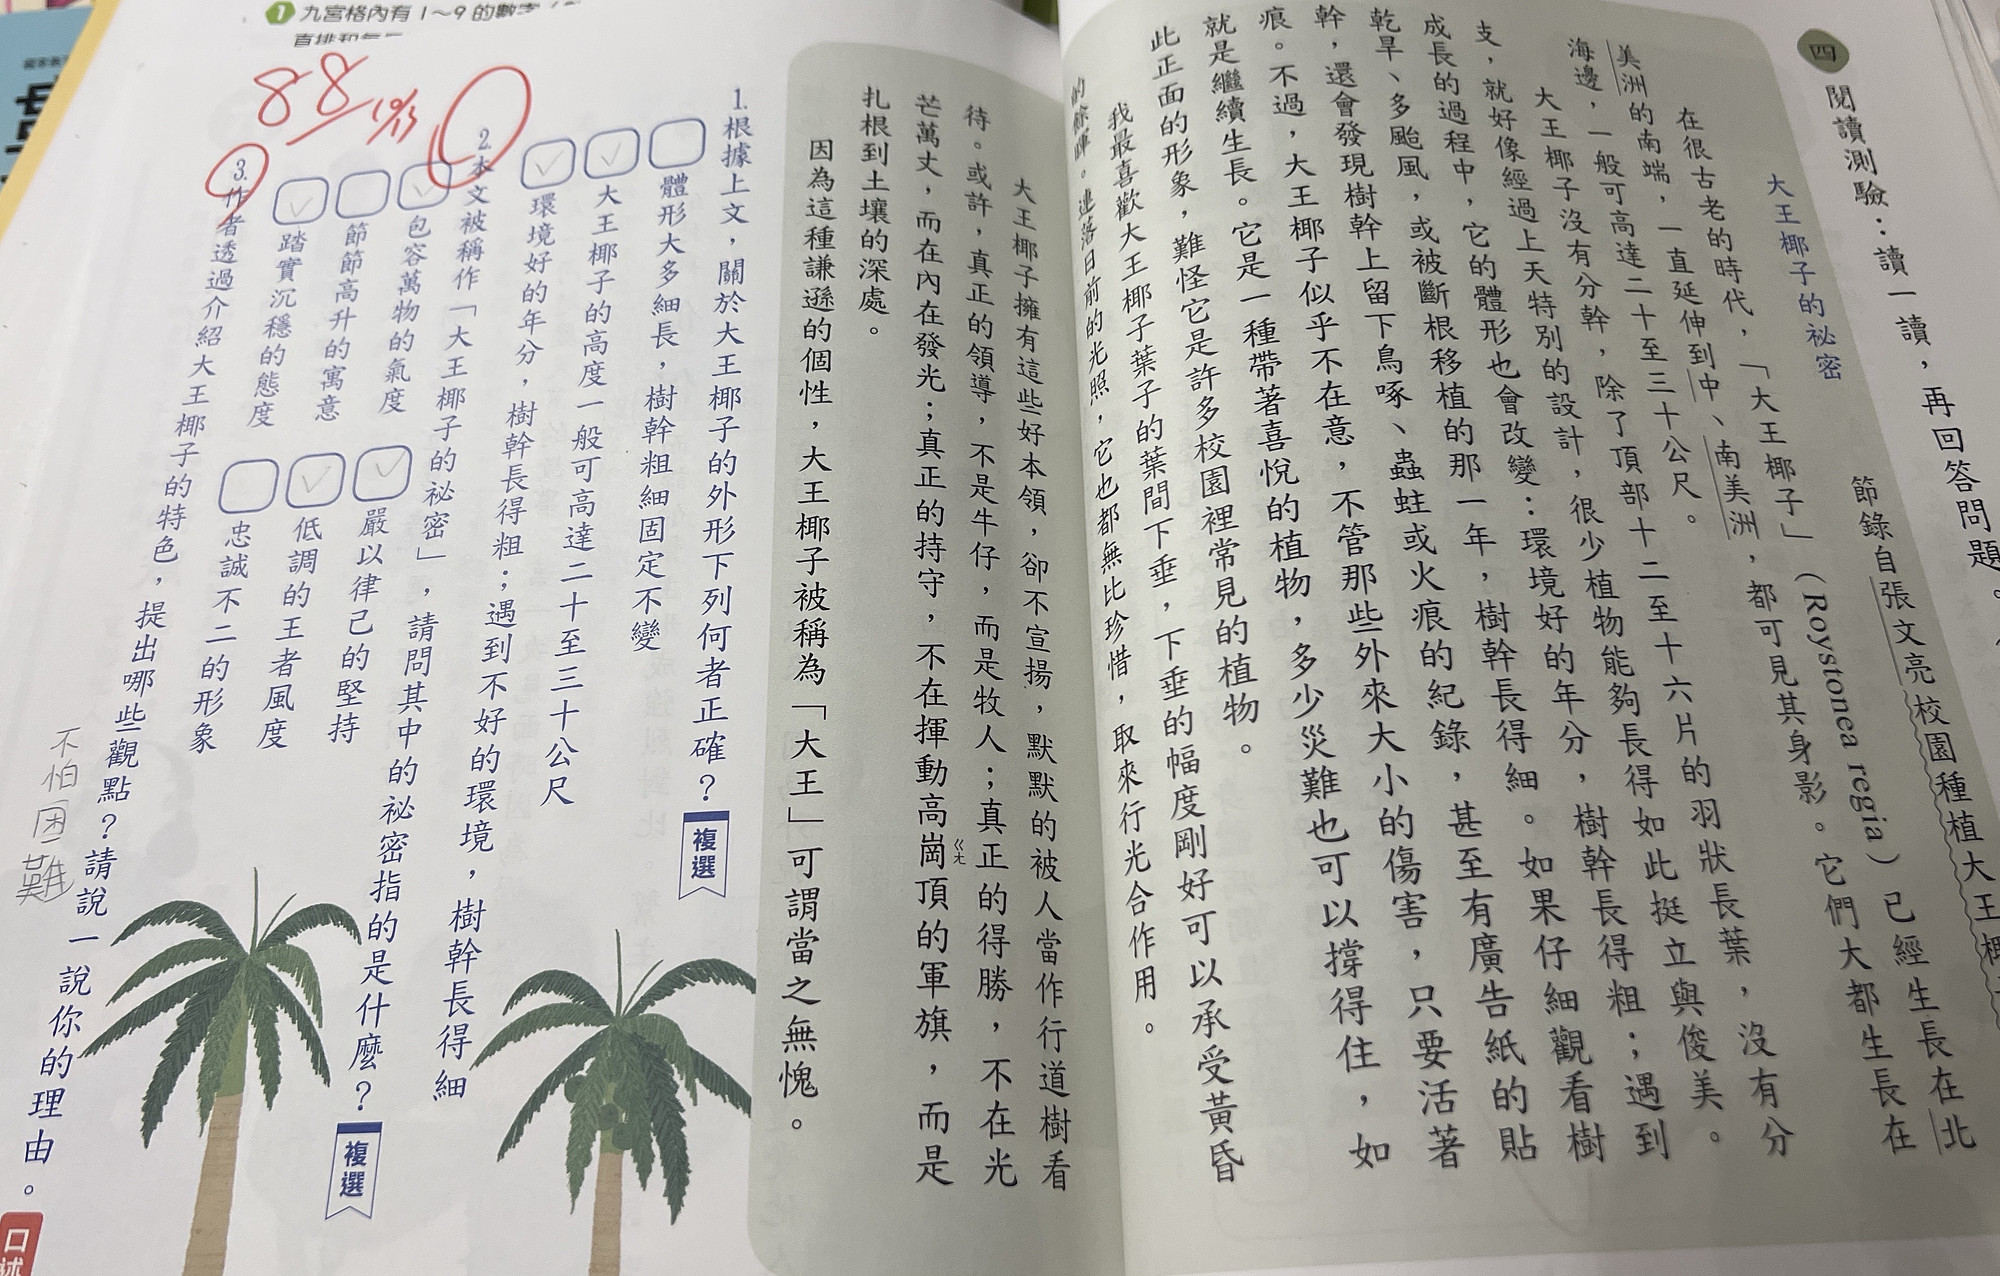 四 閱讀測驗：讀一讀，再回答問題。
大王椰子的祕密
節錄自張文亮校園種植大王椰
在很古老的時代，「大王椰子」（Roystonea regia）已經生長在北
美洲的南端，一直延伸到中、南美洲，都可見其身影。它們大都生長在
海邊，一般可高達二十至三十公尺。
大王椰子沒有分幹，除了頂部十二至十六片的羽狀長葉，沒有分
支，就好像經過上天特別的設計，很少植物能夠長得如此挺立與俊美。
成長的過程中，它的體形也會改變：環境好的年分，樹幹長得粗；遇到
乾旱、多颱風，或被斷根移植的那一年，樹幹長得細。如果仔細觀看樹
幹，還會發現樹幹上留下鳥啄、蟲蛀或火痕的紀錄，甚至有廣告紙的貼
痕。不過，大王椰子似乎不在意，不管那些外來大小的傷害，只要活著
就是繼續生長。它是一種帶著喜悅的植物，多少災難也可以撐得住，如
此正面的形象，難怪它是許多校園裡常見的植物。
我最喜歡大王椰子葉子的葉間下垂，下垂的幅度剛好可以承受黃昏
的餘暉。連落日前的光照，它也都無比珍惜，取來行光合作用。
大王椰子擁有這些好本領，卻不宣揚，默默的被人當作行道樹看
待。或許，真正的領導，不是牛仔，而是牧人；真正的得勝，不在光
芒萬丈，而在內在發光；真正的持守，不在揮動高崗ㄍㄤ頂的軍旗，而是
扎根到土壤的深處。
因為這種謙遜的個性，大王椰子被稱為「大王」可謂當之無愧。
1.根據上文，關於大王椰子的外形下列何者正確？複選
體形大多細長，樹幹粗細固定不變
大王椰子的高度一般可高達二十至三十公尺
環境好的年分，樹幹長得粗；遇到不好的環境，樹幹長得細
2.本文被稱作「大王椰子的祕密」，請問其中的祕密指的是什麼？複選
包容萬物的氣度
嚴以律己的堅持
節節高升的寓意
低調的王者風度
踏實沉穩的態度
忠誠不二的形象
3.作者透過介紹大王椰子的特色，提出哪些觀點？請說一說你的理由。
口述
不怕困難
88
10/13
1 九宮格內有1～9的數字